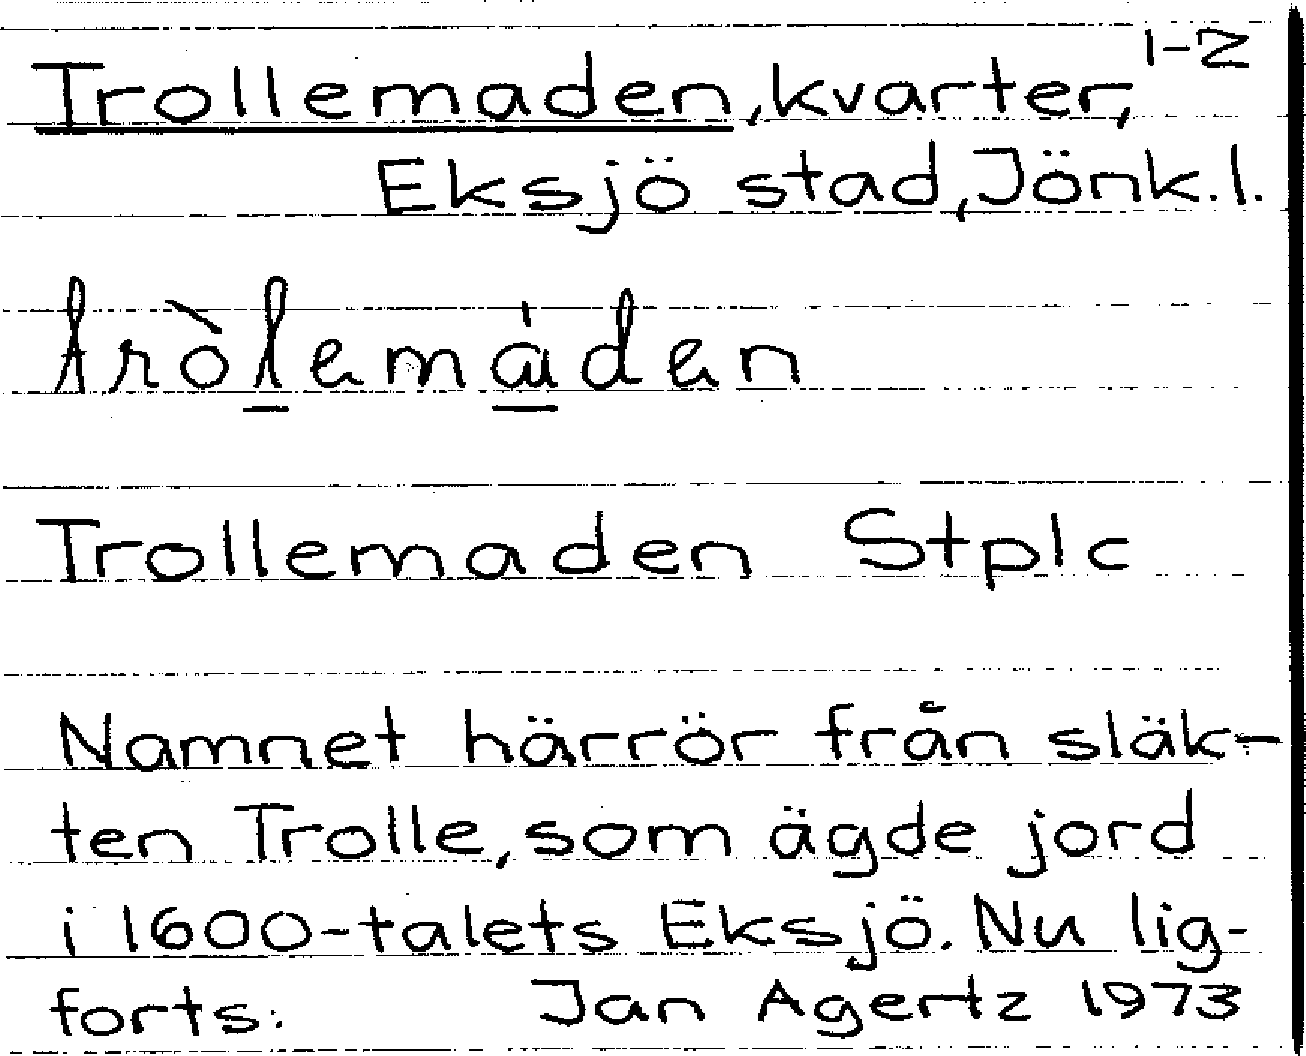 1-2
Trollemaden, kvarter,
Eksjö stad, Jönk. l.
tròlemáden
Trollemaden Stplc
Namnet härrör från släk-
ten Trolle, som ägde jord
i 1600-talets Eksjö. Nu lig-
forts: Jan Agertz 1973